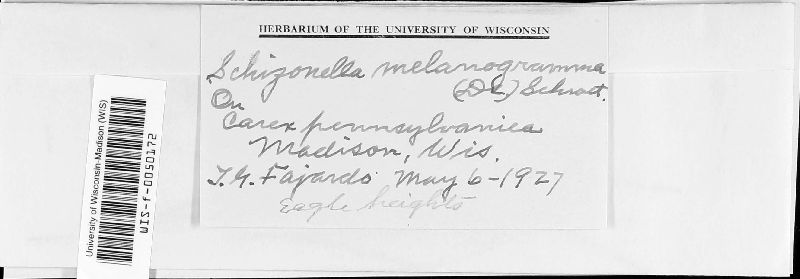 HERBARIUM OF THE UNIVERSITY OF WISCONSIN
Schizonella melanogramma
(DC) Schroet.
On
Carex pennsylvanica
Madison, Wis.
T.G. Fajardo May 6-1927
Eagle heights
University of Wisconsin-Madison (WIS)
WIS-f-0050172